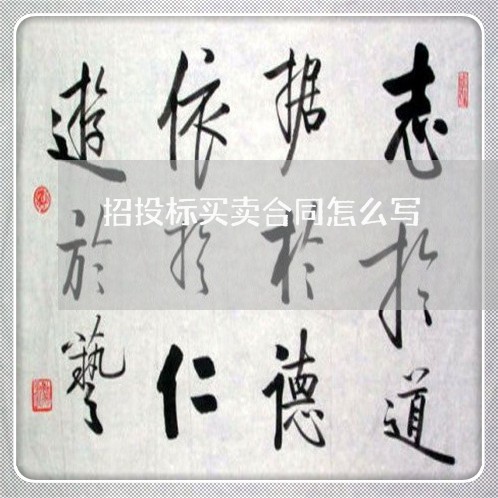 招投标买卖合同怎么写
志於道
据於德
依於仁
遊於藝